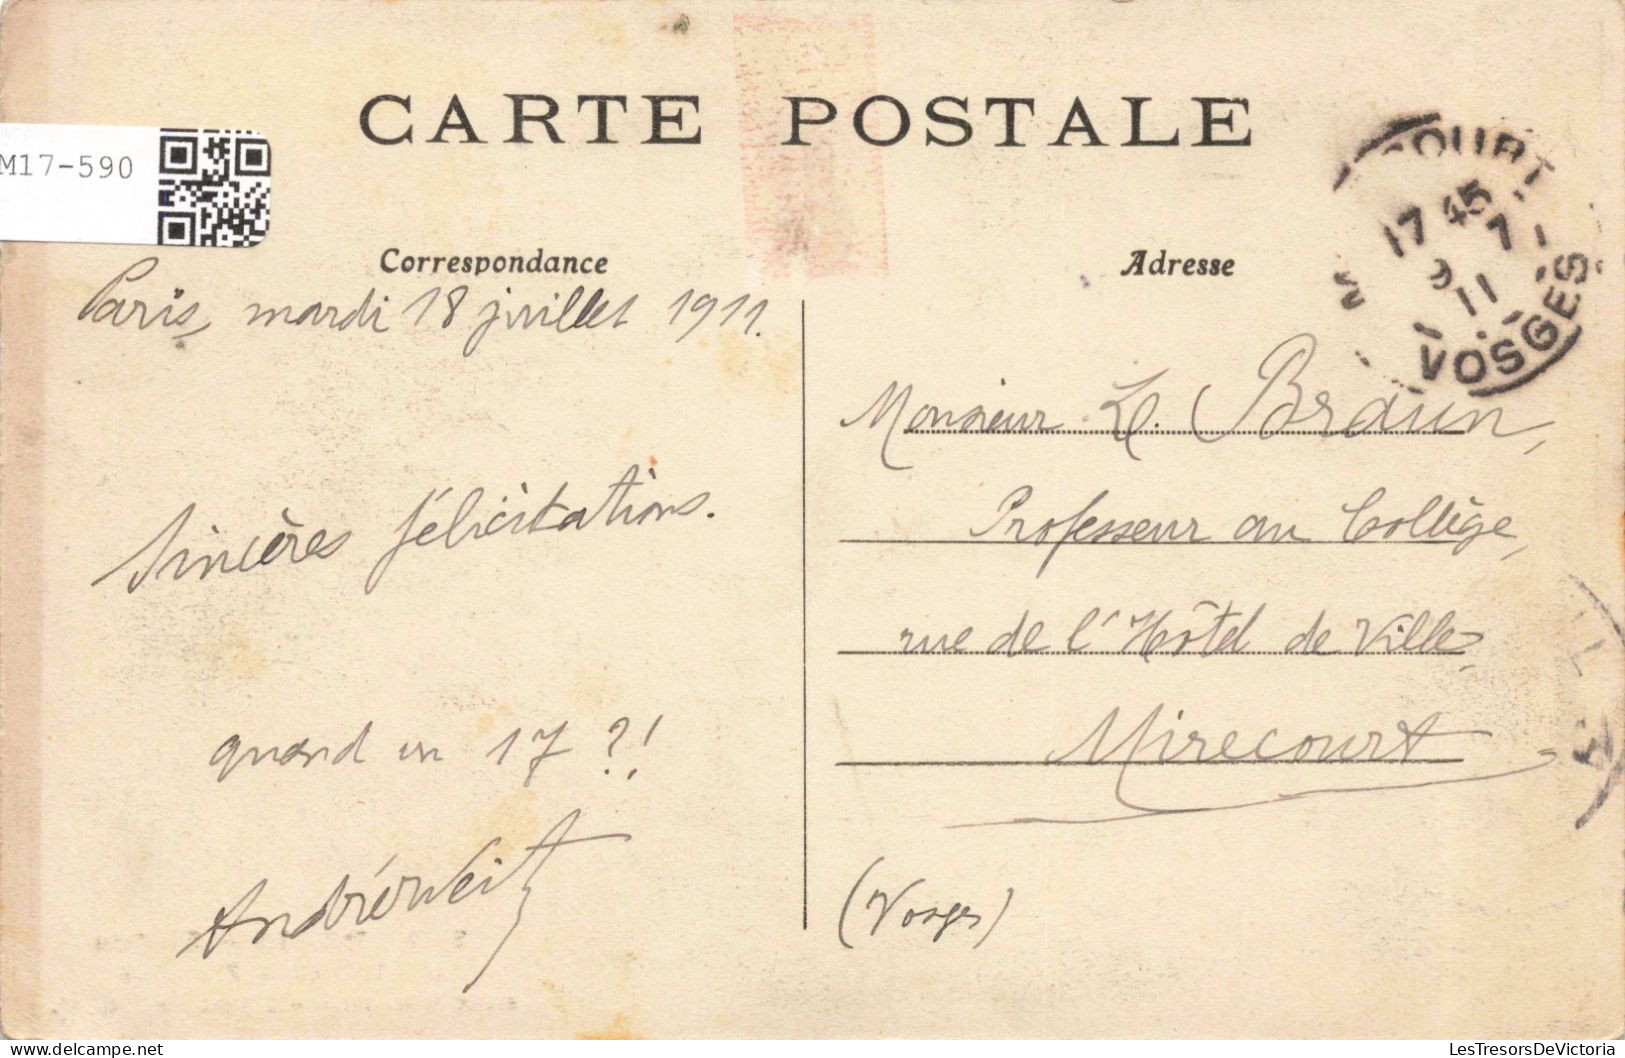 CARTE POSTALE
M17-590
Correspondance
Adresse
Paris, mardi 18 juillet 1911.
Sincères félicitations.
quand un 17 ?!
Monsieur L. Braun,
Professeur au Collège,
rue de l'Hôtel de Ville,
Mirecourt
(Vosges)
COURT
17 45
7
11
VOSGES
LesTresorsDeVictoria